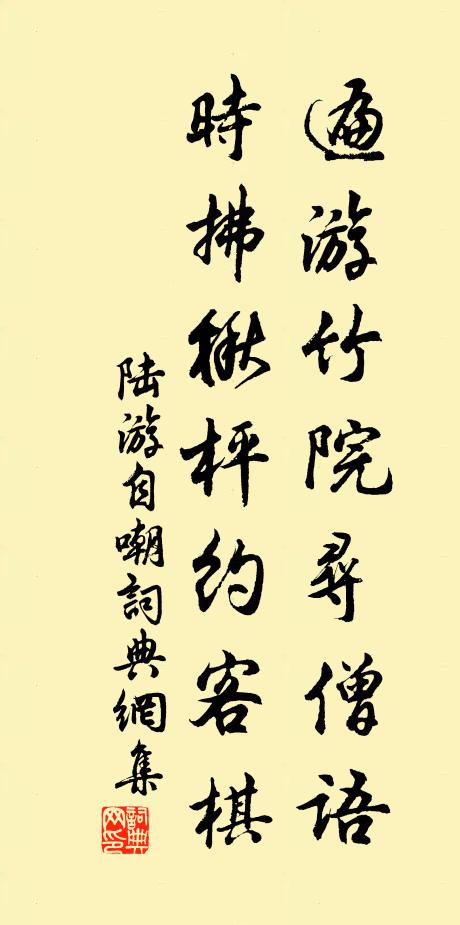 遍游竹院尋僧語
時拂楸枰約客棋
陆游自嘲詞典網集
詞典
网印